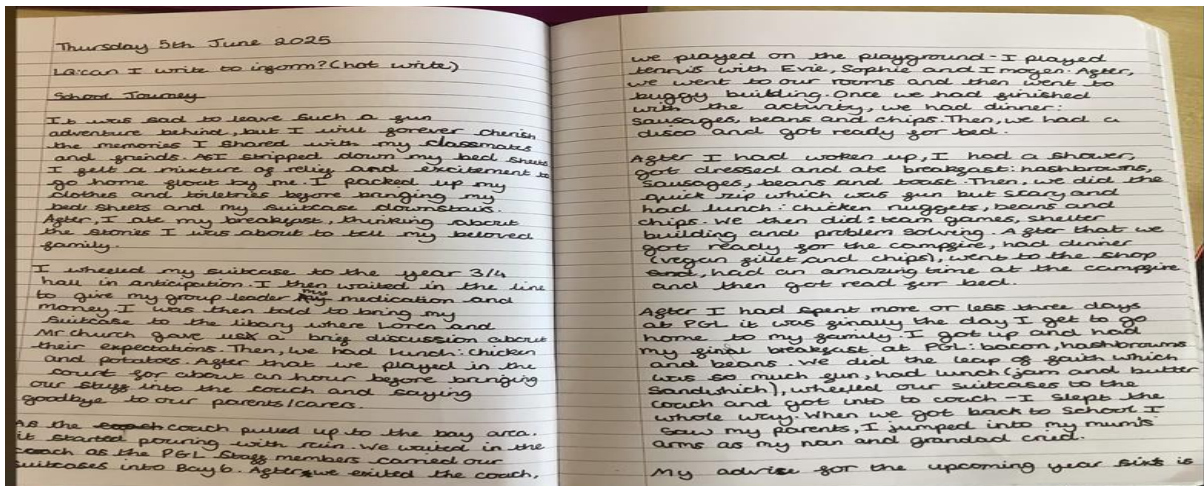 Thursday 5th June 2025
LQ: can I write to inform? (hot write)
School Journey
It was sad to leave such a fun
adventure behind, but I will forever cherish
the memories I shared with my classmates
and friends. As I stripped down my bed sheets
I felt a mixture of relief and excitement to
go home float by me. I packed up my
clothes and toiletries before bringing my
bed sheets and my suitcase downstairs.
After, I ate my breakfast, thinking about
the stories I was about to tell my beloved
family.
I wheeled my suitcase to the year 3/4
hall in anticipation. I then waited in the line
to give my group leader my medication and
money I was then told to bring my
suitcase to the libary where Loren and
Mr church gave us a brief discussion about
their expectations. Then, we had lunch: chicken
and potatoes. After that we played in the
court for about an hour before bringing
our stuff into the coach and saying
goodbye to our parents/carers.
As the coach pulled up to the bay area.
it started pouring with rain. We waited in the
coach as the PGL staff members carried our
suitcases into Bay 6. After we exited the coach,
we played on the playground - I played
tennis with Evie, Sophie and Imogen. After,
we went to our rooms and then went to
buggy building. Once we had finished
with the activity, we had dinner:
sausages, beans and chips. Then, we had a
disco and got ready for bed.
After I had woken up, I had a shower,
got dressed and ate breakfast: hashbrowns,
sausages, beans and toast. Then, we did the
quick zip which was fun but scary and
had lunch: chicken nuggets, beans and
chips. We then did: team games, shelter
building and problem solving. After that we
got ready for the campfire, had dinner
(vegan fillet and chips), went to the shop
and, had an amazing time at the campfire
and then got read for bed.
After I had spent more or less three days
at PGL it was finally the day I get to go
home to my family. I got up and had
my final breakfast at PGL: bacon, hashbrowns
and beans. We did the leap of faith which
was so much fun, had lunch (jam and butter
sandwhich), wheeled our suitcases to the
coach and got into to coach - I slept the
whole way. When we got back to school I
saw my parents, I jumped into my mum's
arms as my nan and grandad cried.
My advise for the upcoming year sixs is